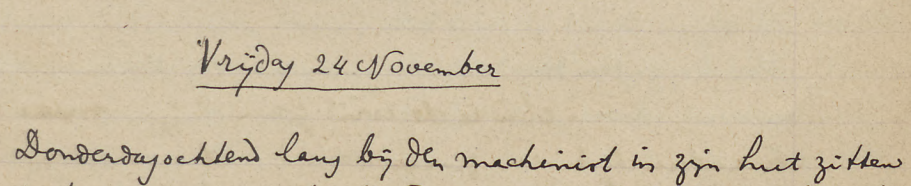 Vrijdag 24 November
Donderdagochtend lang bij den machinist in zijn hut zitten